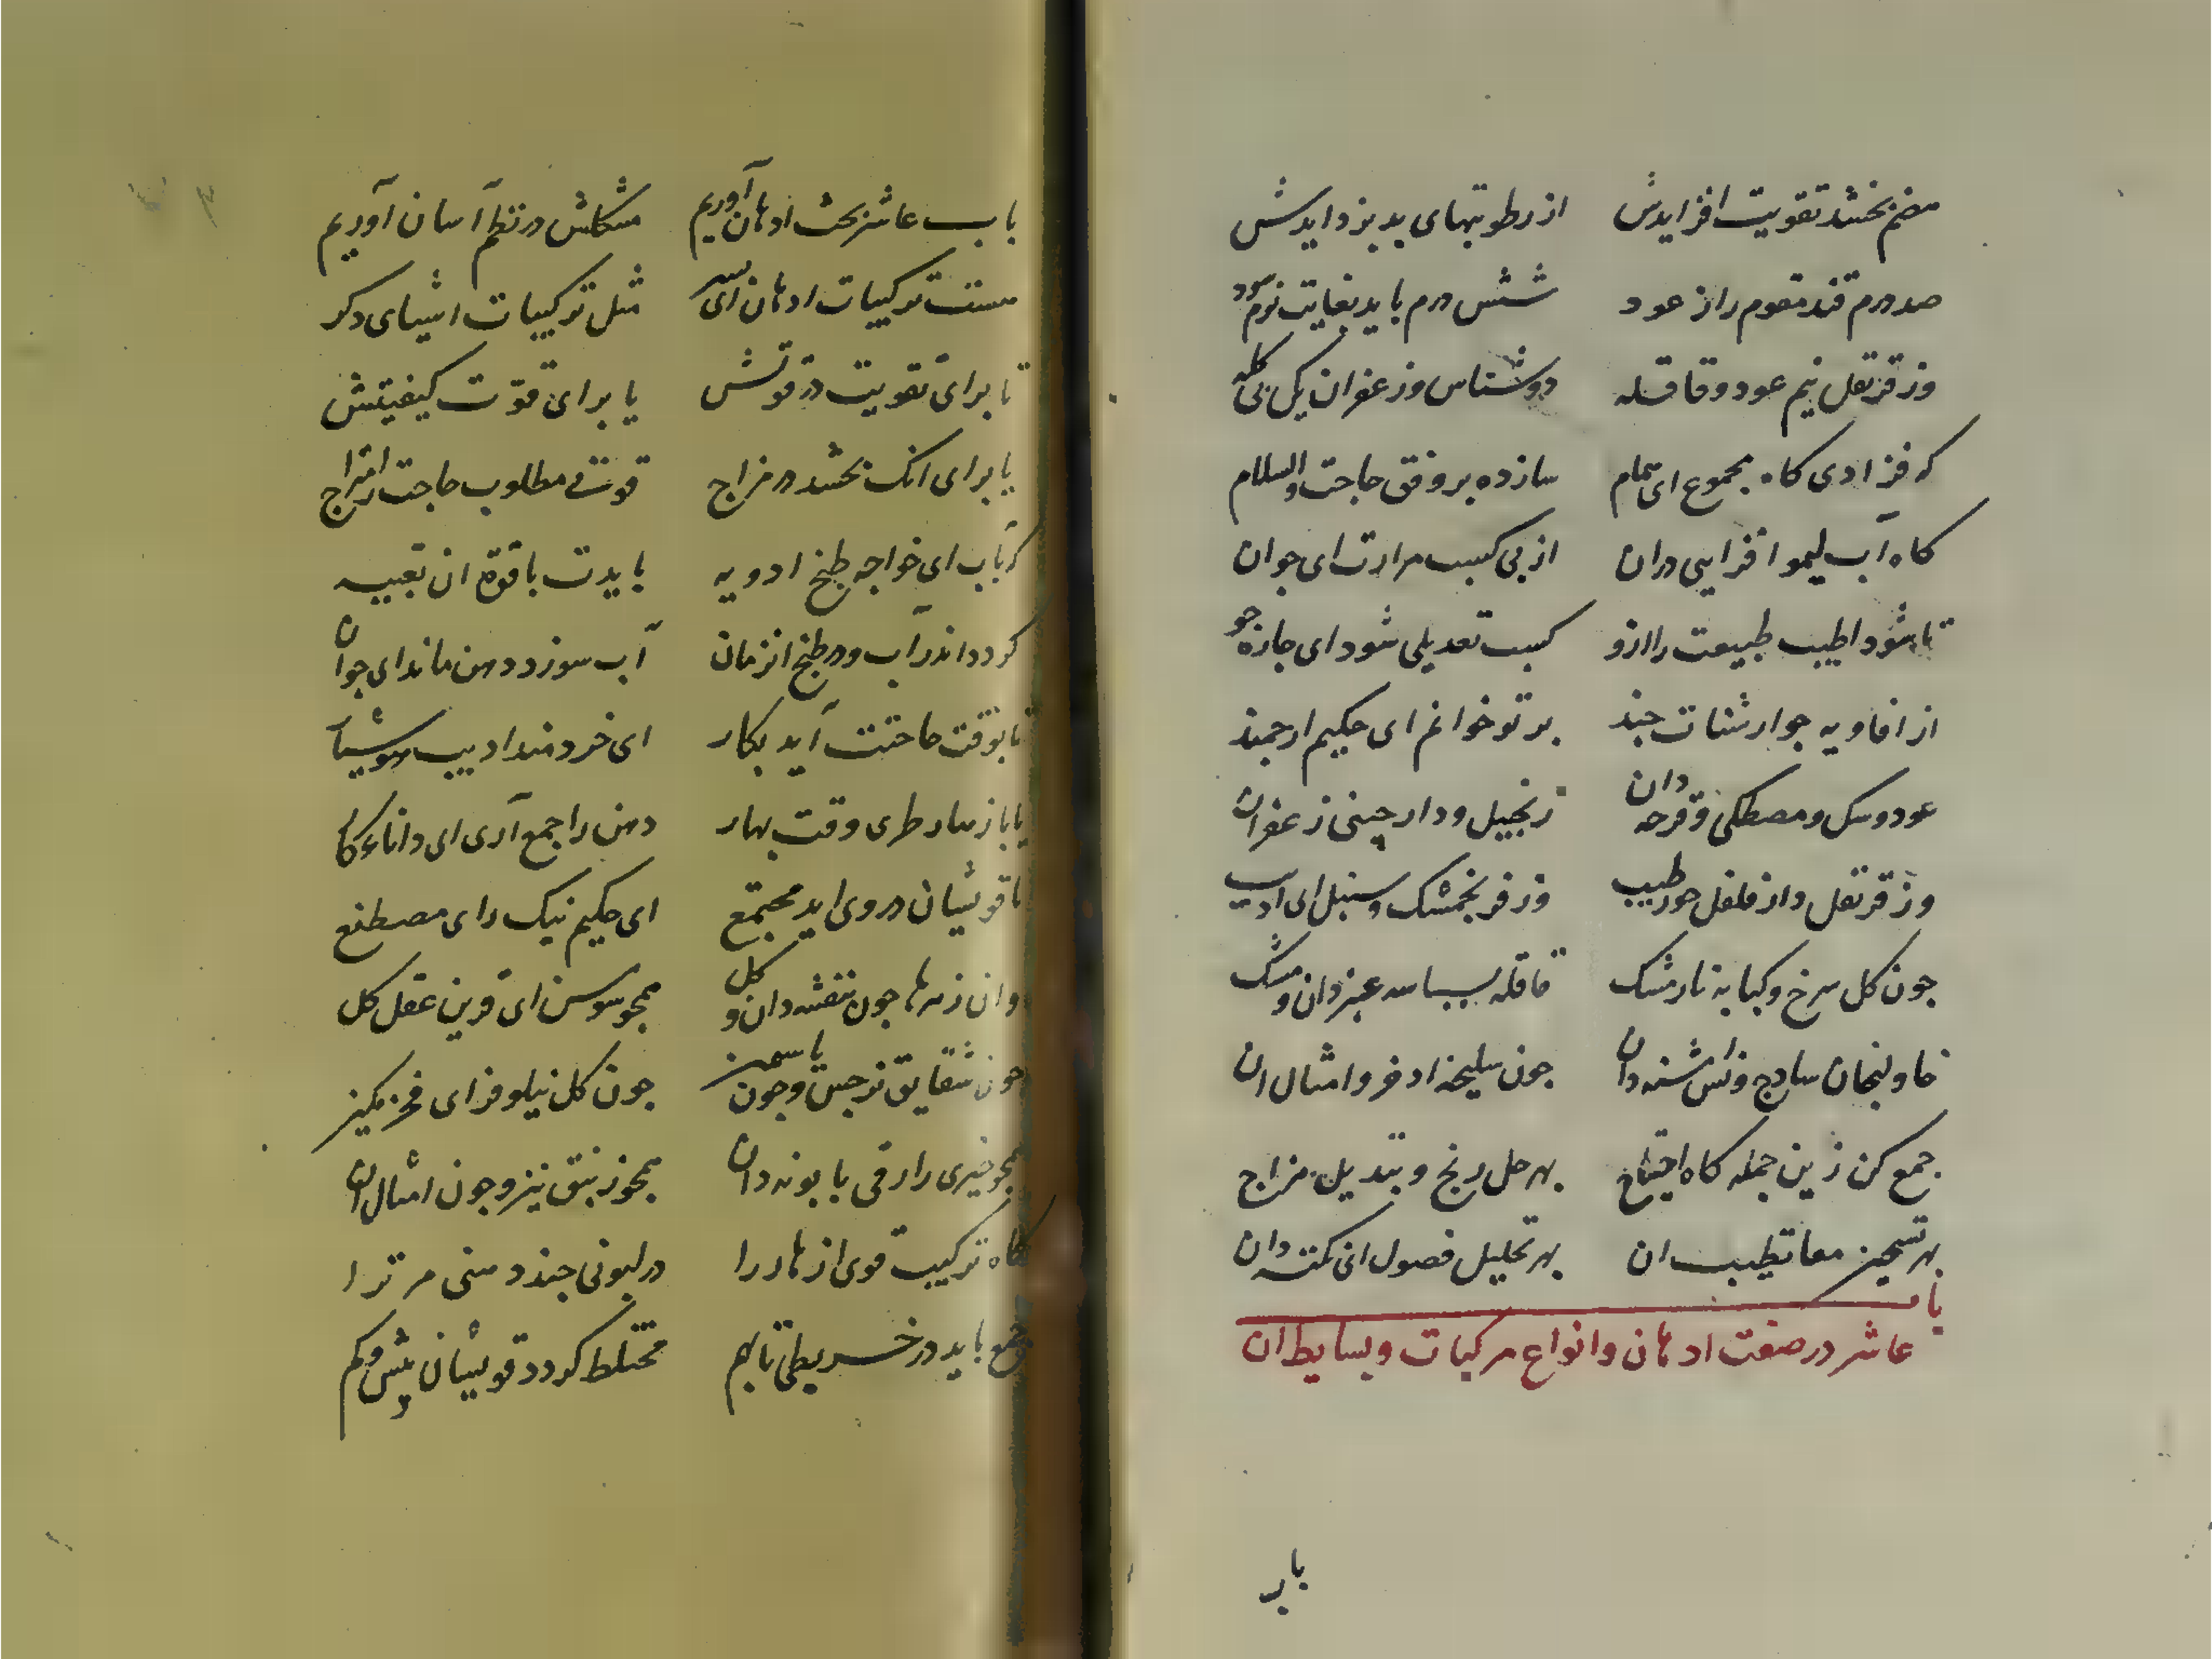 هضم بخشد تقویت افزایدش از رطوبتهای بد بزدایدش
صد درم قند مقوم را ز عود شش درم باید بغایت نرم سود
وز قرنفل نیم عود و قاقله دو شناس وز عفران یک بی کله
که فزادی کاه مجموع ای همام سازده بر وفق حاجت والسلام
کاه آب لیمو افزایی دران از پی کسب مرارت ای جوان
تا شود اطیب طبیعت را ازو کسب تعدیلی شود ای جاره جو
از افاویه جوارشنات جند بر تو خوانم ای حکیم ارجمند
عود و سک و مصطکی و قرحه دان زنجبیل و دارچینی زعفران
وز قرنفل دار فلفل جو طبیب وز فرنجمشک و سنبل ای ادیب
جون کل سرخ و کبابه نارمشک قاقله بسباسه عنبر دان و مشک
خاولنجان سادج و اشنه دان جون سلیخه ادخر و امثال ان
جمع کن زین جمله کاه احتیاج بهر حل رنج و تبدیل مزاج
بهر تسخین معا تطییب ان بهر تحلیل فصول ای نکته دان
باب عاشر در صفت ادهان و انواع مرکبات و بسایط ان
باب
باب عاشر بحث ادهان آوریم مشکلش در نظم آسان آوریم
هست ترکیبات ادهان ای پسر مثل ترکیبات اشیای دکر
تا برای تقویت در قوتش یا برای قوت کیفیتش
یا برای انک بخشد در مزاج قوتی مطلوب حاجت را مزاج
کر باب ای خواجه طبخ ادویه بایدت با قوة ان تعبیه
کردد اندر آب و در طبخ انزمان آب سوزد دهن ماند ای جوان
تا بوقت حاجتت آید بکار ای خردمند ادیب هوشیار
یا باز هار طری وقت بهار دهن را جمع آری ای داناء کار
تا قویشان در وی اید مجتمع ای حکیم نیک رای مصطنع
وان زهرها جون بنفشه دان و کل همجو سوسن ای قرین عقل کل
جون شقایق نرجس و جون یاسمین جون کل نیلوفر ای فخر مکین
همجو خیری رازقی بابونه دان همجو زنبق نیز و جون امثال ان
کاه ترکیب قوی ازهار را در لبوبی جند دهنی مر ترا
جمع باید در خریطی تا بهم مختلط کردد قویشان بیش و کم